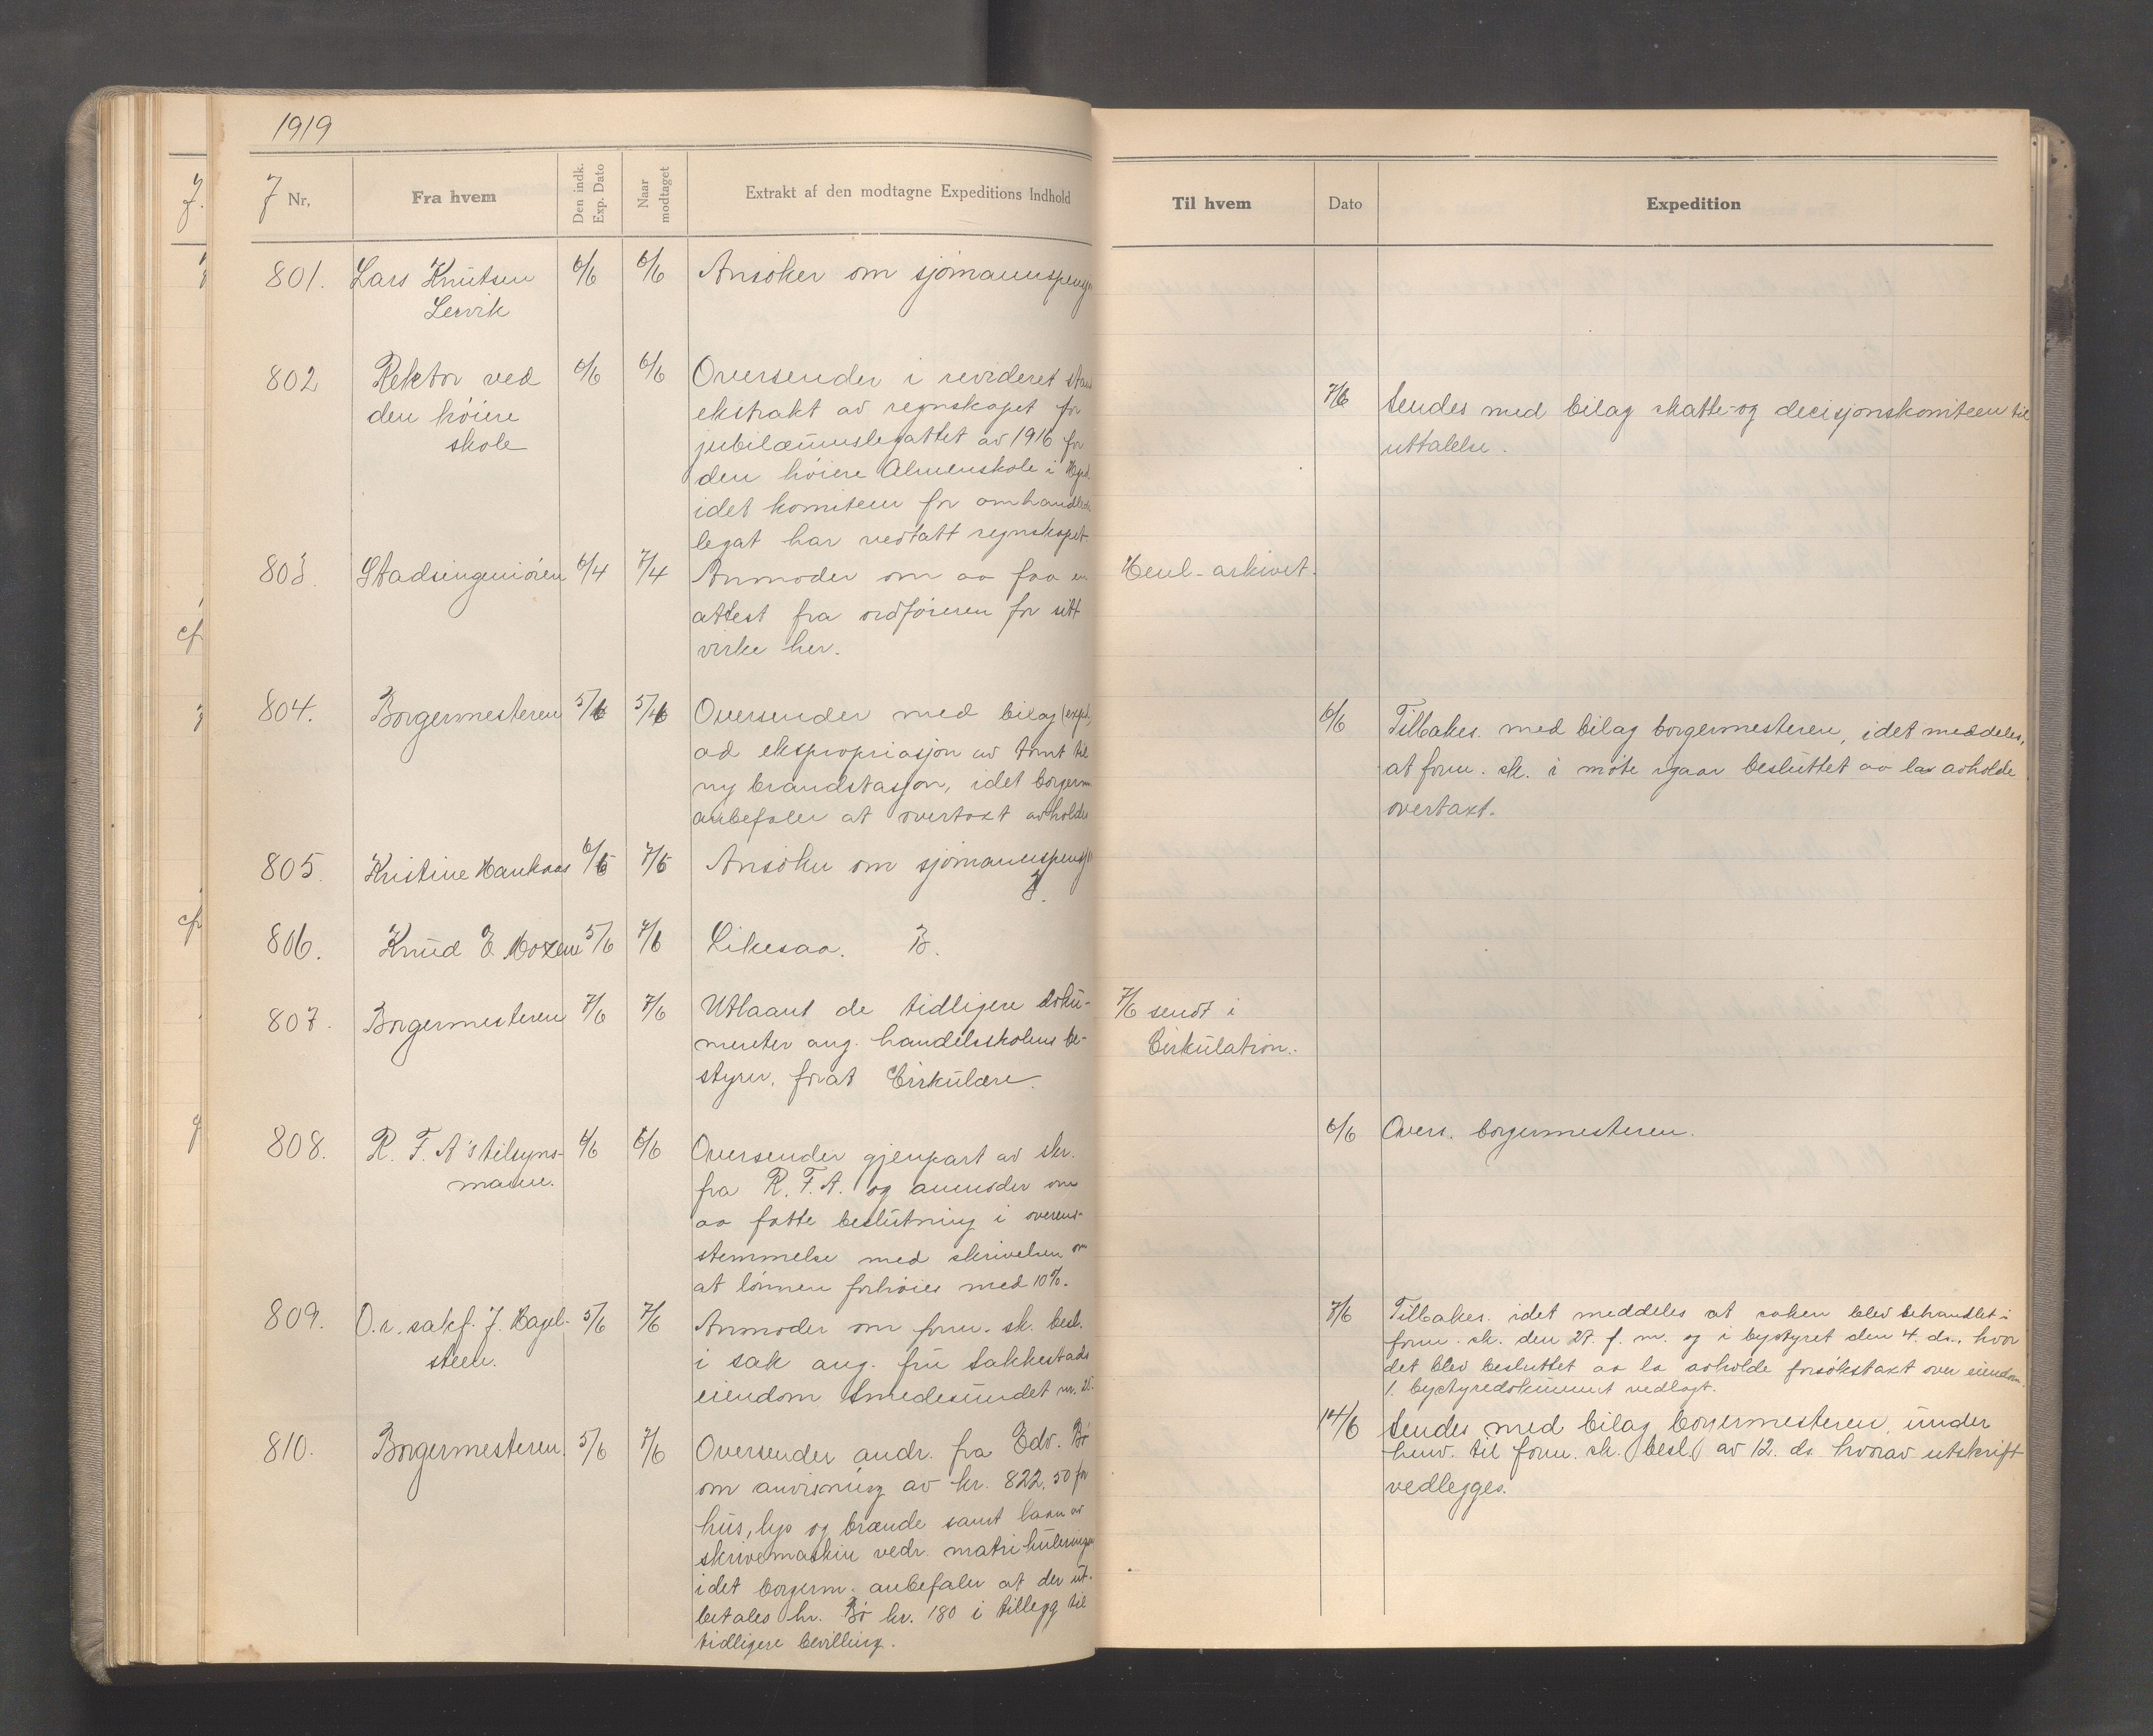 1919
J Nr,
Fra hvem
Den indk. Exp. Dato
Naar modtaget
Extrakt af den modtagne Expeditions Indhold
Til hvem
Dato
Expedition
801. Lars Knutsen 6/6 6/6 Ansöker om sjömannspensjon
Lervik
802 Rektor ved 6/6 6/6 Oversender i revideret stand
den höiere ekstrakt av regnskapet for
skole jubilæumslegattet av 1916 for
den höiere Almenskole i
idet komiteen for omhandlede
legat har vedtatt regnskapet.
7/6 Sendes med bilag skatte- og decisjonskomiteen til
uttalelse.
803. Stadsingeniören 6/4 7/4 Anmoder om aa faa en
attest fra ordföreren for sitt
virke her.
Henl. arkivet.
804. Borgermesteren 5/6 5/6 Oversender med bilag
ad ekspropriasjon av tomt til
ny brandstasjon, idet borgerm.
anbefaler at overtaxt avholdes
6/6 Tilbakes. med bilag borgermesteren, idet meddeles,
at form. sk. i möte igaar besluttet aa la avholde
overtaxt.
805. Kristine Haukaas 6/6 7/6 Ansöker om sjömannspensjon
B.
806. Knud E 5/6 7/6 Likesaa. B.
807. Borgermesteren 7/6 7/6 Utlaant de tidligere doku-
menter ang. handelsskolens be-
styrer, forat Cirkulere.
7/6 sendt i
Cirkulation.
808. R. F. A's tilsyns- 4/6 6/6 Oversender gjenpart av skr.
mann. fra R. F. A. og anmoder om
aa fatte beslutning i overens-
stemmelse med skrivelsen om
at lönnen forhöies med 10%.
6/6 Overs. borgermesteren.
809. O.r. sakf. J. Hagel- 5/6 7/6 Anmoder om form. sk. besl.
steen. i sak ang. fru Sakkestads
eiendom Smedesundet nr. 25.
7/6 Tilbakes. idet meddeles at saken blev behandlet i
form. sk. den 27. f. m. og i bystyret den 4. ds., hvor
det blev besluttet aa la avholde forsökstaxt over eiendom.
1. bystyredokument vedlagt.
810. Borgermesteren. 5/6 7/6 Oversender andr. fra Edv. Bö
om anvisning av kr. 822,50 for
hus, lys og brænde samt laan av
skrivemaskin vedr. matrikuleringen
idet borgerm. anbefaler at der ut-
betales hr. Bö kr. 180 i tillegg til
tidligere bevilling.
14/6 Sendes med bilag borgermesteren under
henv. til form. sk. besl. av 12. ds. hvorav utskrift
vedlegges.